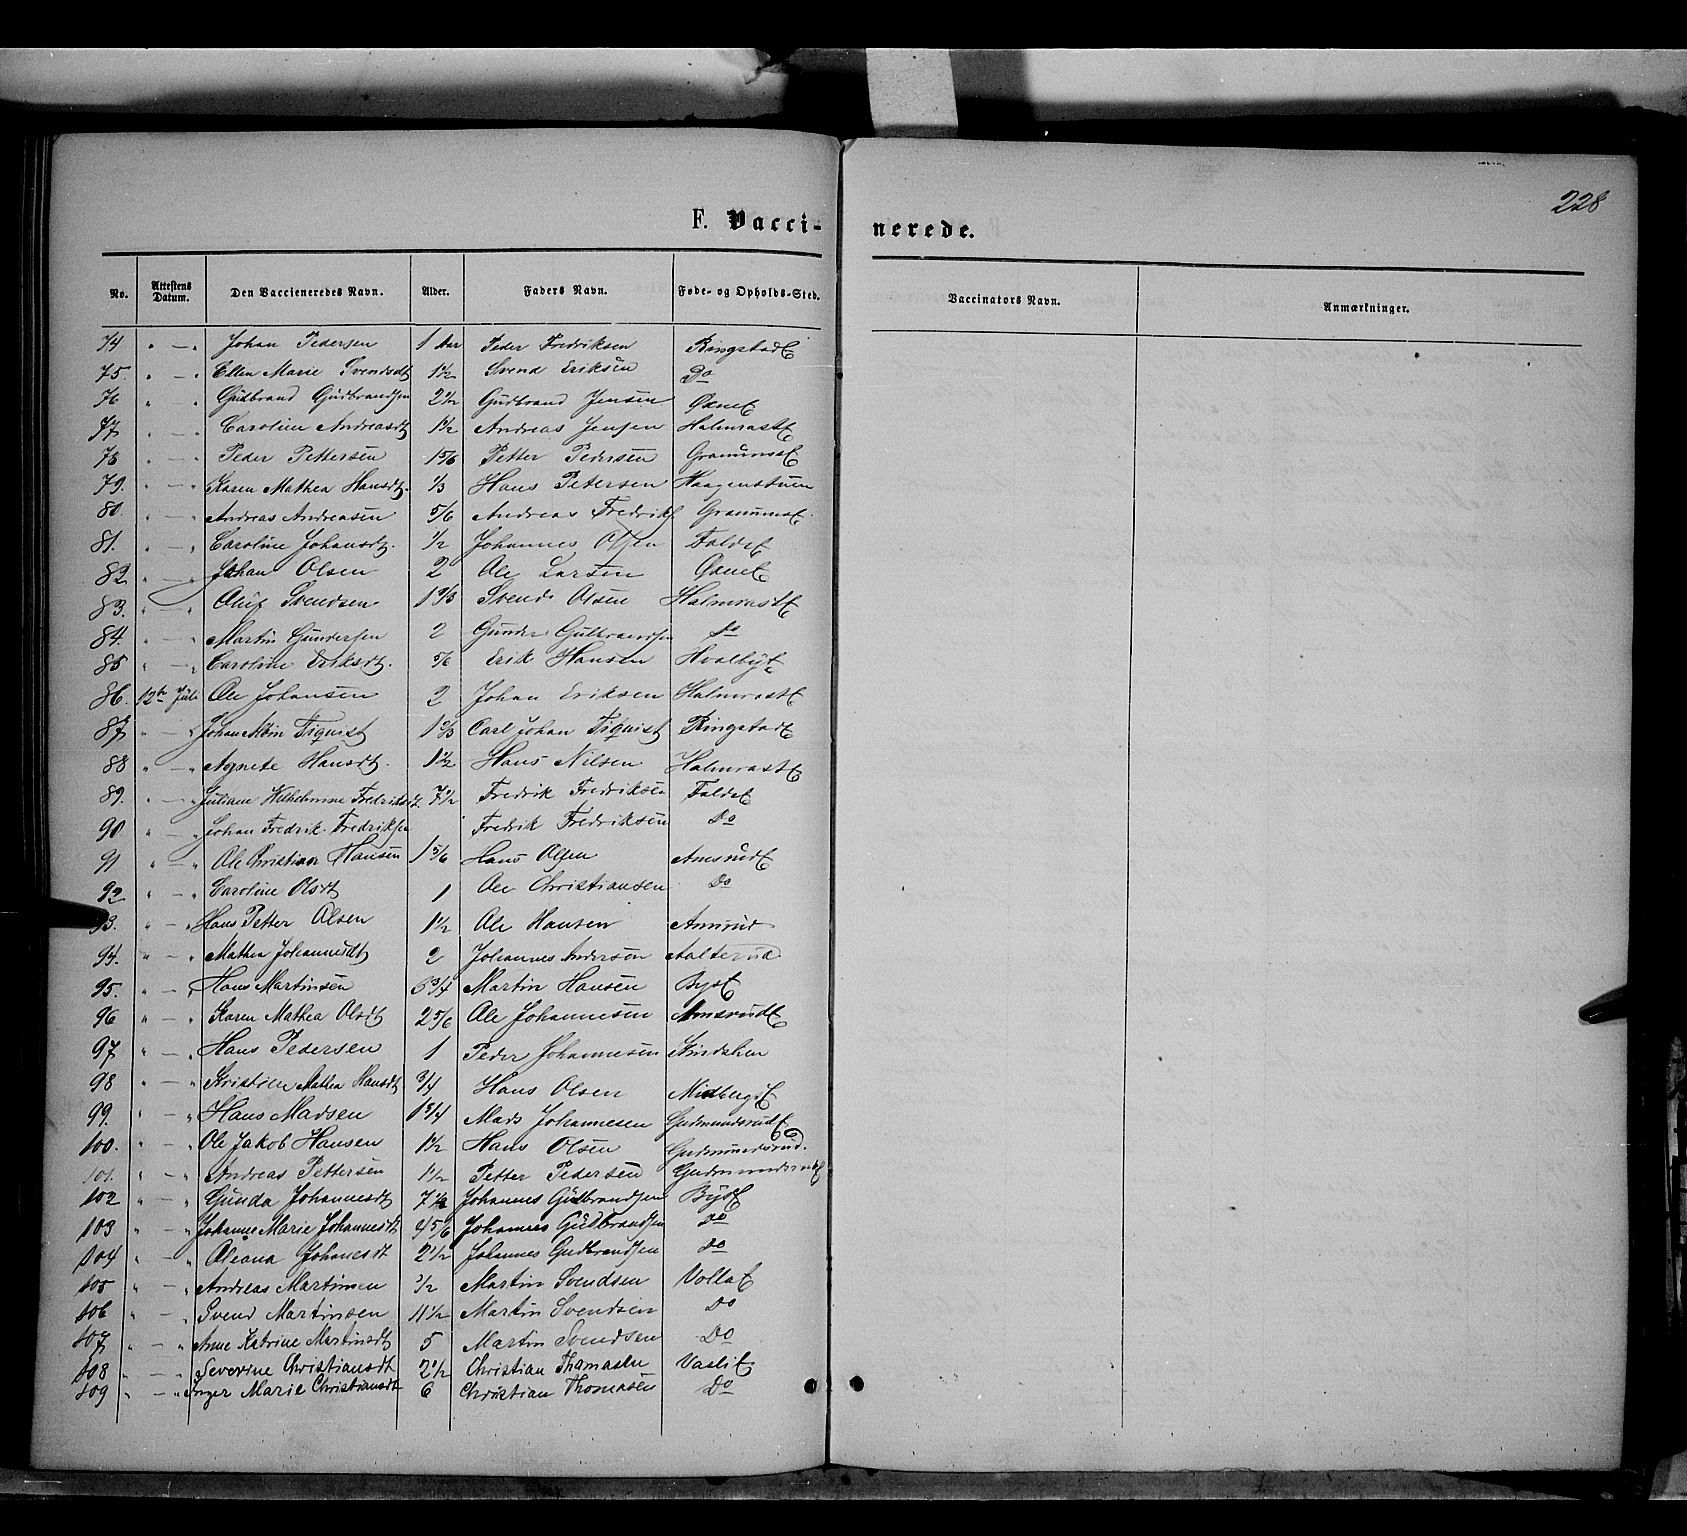 228
F. Vacci-nerede.
No. Attestens Datum. Den Vaccieneredes Navn. Alder. Faders Navn. Føde- og Opholds-Sted. Vaccinators Navn. Anmærkninger.
74 " — " Johan Pedersen 1 Aar Peder Fredriksen Ringstad
75. " — " Ellen Marie Svendsdt 1 1/2 Svend Eriksen Do
76 " — " Gudbrand Gudbrandsen 2 1/2 Gudbrand Jensen
77 " — " Caroline Andreasdt 1 1/2 Andreas Jensen Halmrast
78 " — " Peder Pettersen 1 5/6 Petter Pedersen
79. " — " Karen Mathea Hansdt. 1/3 Hans Petersen Haagenstuen
80. " — " Andreas Andreasen 5/6 Andreas Fredriks
81. " — " Caroline Johansdt. 1/2 Johannes Olsen Faldet
82 " — " Johan Olsen 2 Ole Larsen
83. " — " Oluf Svendsen Svend Olsen Halmrast
84. " — " Martin Gundersen 2 Gunder Gulbrandsen Do
85 " — " Caroline Eriksdt. 5/6 Erik Hansen Hvalbye
86. 12te Juli Ole Johansen 2 Johan Eriksen Halmrast
87 " — " Johan Tiquist 1 2/3 Carl Johan Tiquist Ringstad
88 " — " Agnete Hansdt. 1 1/2 Hans Nilsen Halmrast
89. " — " Juliane Wilhelmine Fredriksdt. 7 1/2 Fredrik Fredriksen Faldet
90 " — " Johan Fredrik Fredriksen Fredrik Fredriksen Do
91 " — " Ole Christian Hansen 1 5/6 Hans Olsen Amsrud
92 " — " Caroline Olsdt 1 Ole Christiansen Do
93. " — " Hans Petter Olsen 1 1/2 Ole Hansen Amsrud
94. " — " Mathea Johannesdt 2 Johannes Andersen Aalterud
95. " — " Hans Martinsen 6 3/4 Martin Hansen Byst
96 " — " Karen Mathea Olsdt 2 5/6 Ole Johannesen Amsrud
97 " — " Hans Pedersen 1 Peder Johannesen
98 " — " Kristine Mathea Hansdt 3/4 Hans Olsen Midberg
99. " — " Hans Madsen 1 3/4 Mads Johannesen Gudmundsrud
100. " — " Ole Jakob Hansen 1 1/2 Hans Olsen Gudmundsrud.
101. " — " Andreas Pettersen 1 1/2 Petter Pedersen Gudmundsrud
102 " — " Gunda Johannesdt 7 1/2 Johannes Gudbrandsen Byst
103 " — " Johanne Marie Johannesdt 4 5/6 Johannes Gudbrandsen Do
104 " — " Oleana Johanesdt 2 1/2 Johannes Gudbrandsen Do
105 " — " Andreas Martinsen 1/2 Martin Svendsen Volla
106 " — " Svend Martinsen 11 1/2 Martin Svendsen Do
107 " — " Anne Katrine Martinsdt 5 Martin Svendsen Do
108 " — " Severine Christiansdt 2 1/2 Christian Thomasen Vaslie
109 " — " Inger Marie Christiansdt 6 Christian Thomasen Do